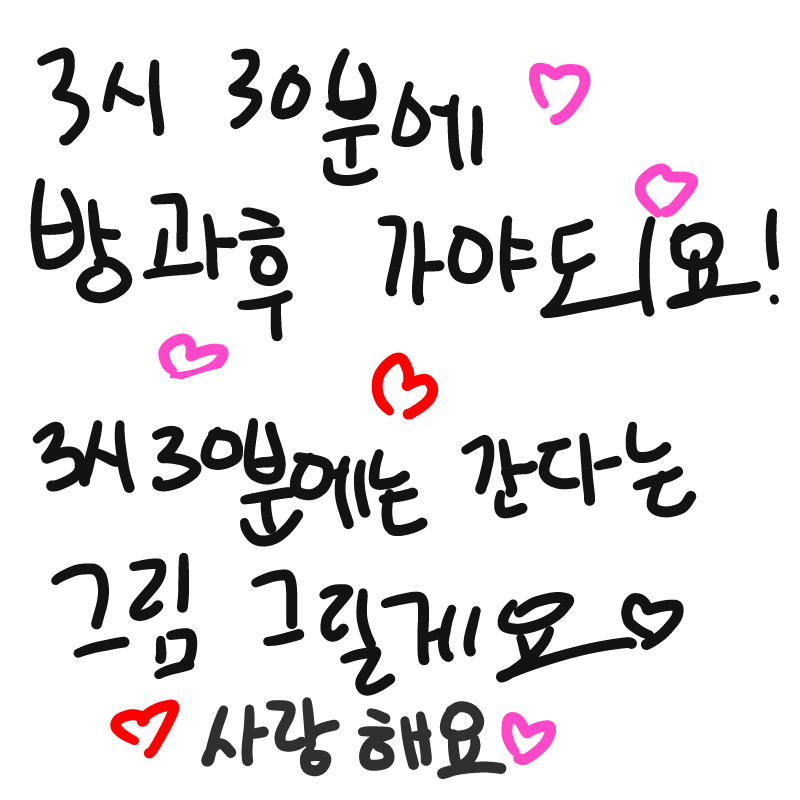 3시 30분에
방과후 가야되요!
3시30분에는 간다는
그림 그릴게요
사랑해요